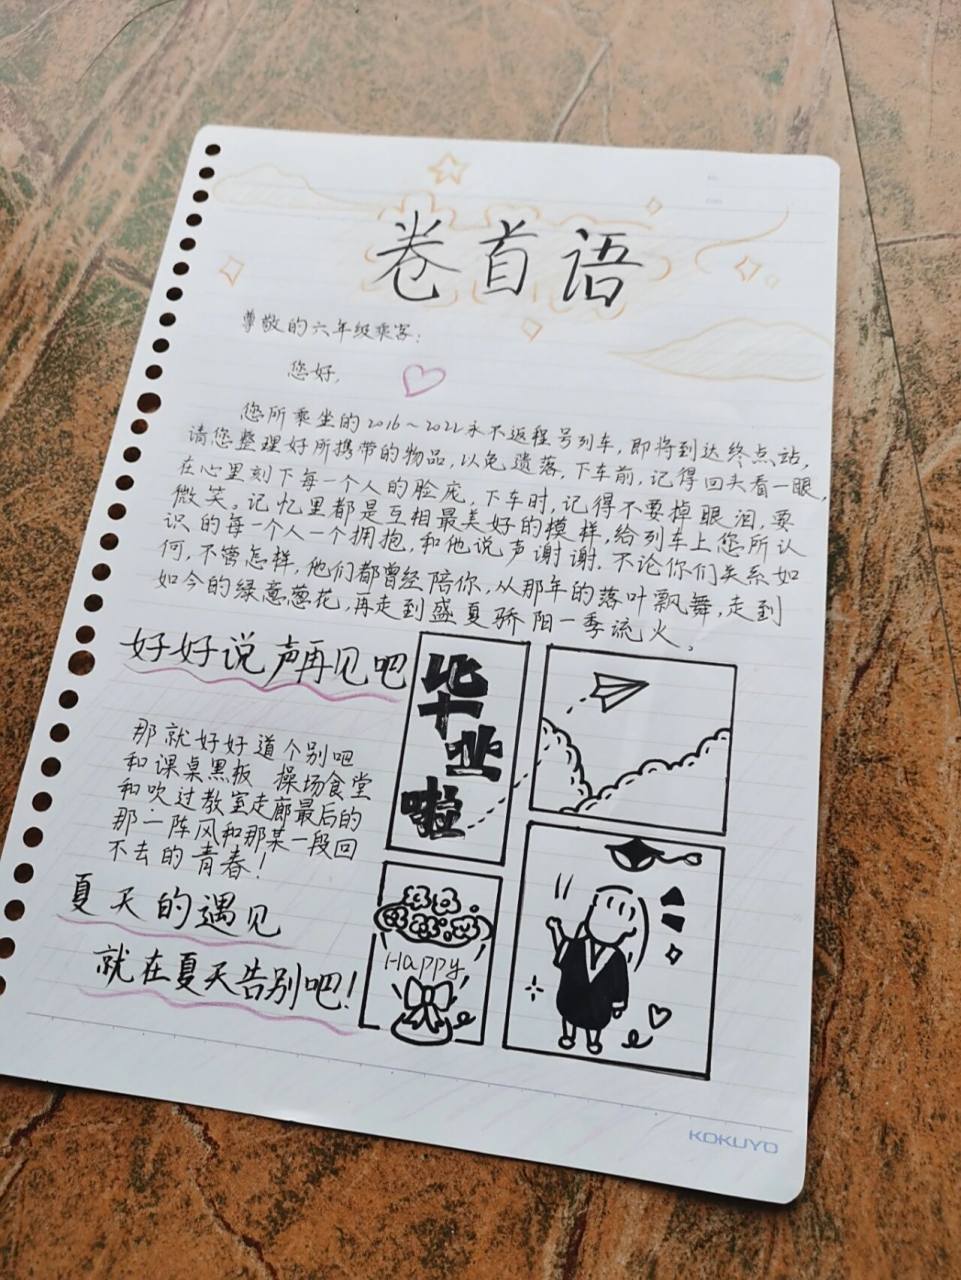 卷首语
尊敬的六年级乘客:
您好,
您所乘坐的2016~2022永不返程号列车,即将到达终点站,
请您整理好所携带的物品,以免遗落,下车前,记得回头看一眼,
在心里刻下每一个人的脸庞,下车时,记得不要掉眼泪,要
微笑。记忆里都是互相最美好的模样,给列车上您所认
识的每一个人一个拥抱,和他说声谢谢.不论你们关系如
何,不管怎样,他们都曾经陪你,从那年的落叶飘舞,走到
如今的绿意葱花,再走到盛夏骄阳一季流火。
好好说声再见吧
那就好好道个别吧
和课桌黑板 操场食堂
和吹过教室走廊最后的
那一阵风和那某一段回
不去的青春!
夏天的遇见
就在夏天告别吧!
毕业啦
Happy
KOKUYO